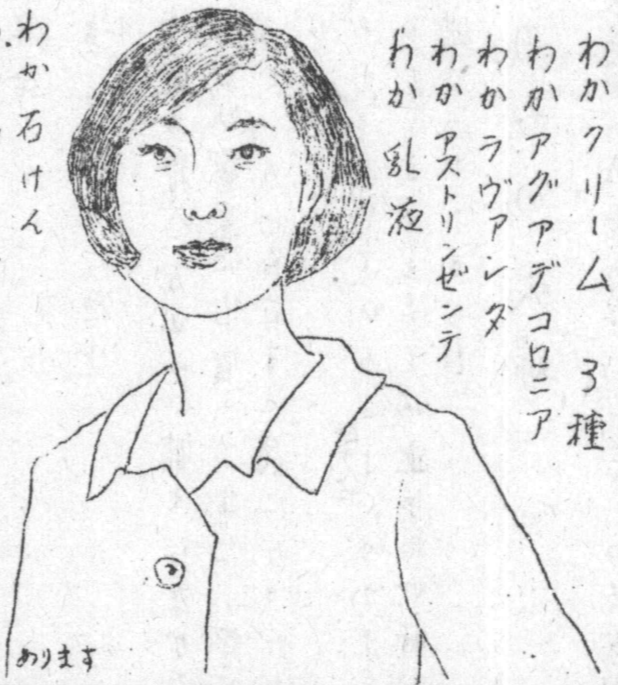 わかクリーム 3種
わかアグアデコロニア
わかラヴァンダ
わかアストリンゼンテ
わか乳液
わか石けん
あります